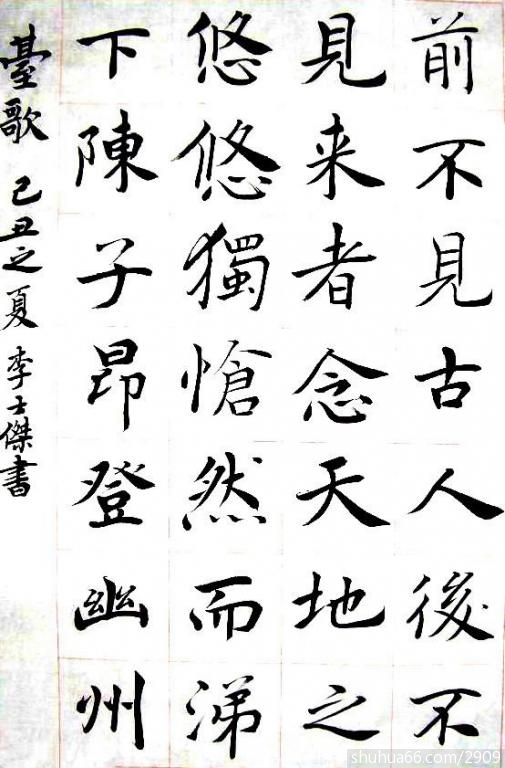 前不見古人後不
見来者念天地之
悠悠獨愴然而涕
下陳子昂登幽州
臺歌 己丑之夏 李士傑書
shuhua66.com/2909